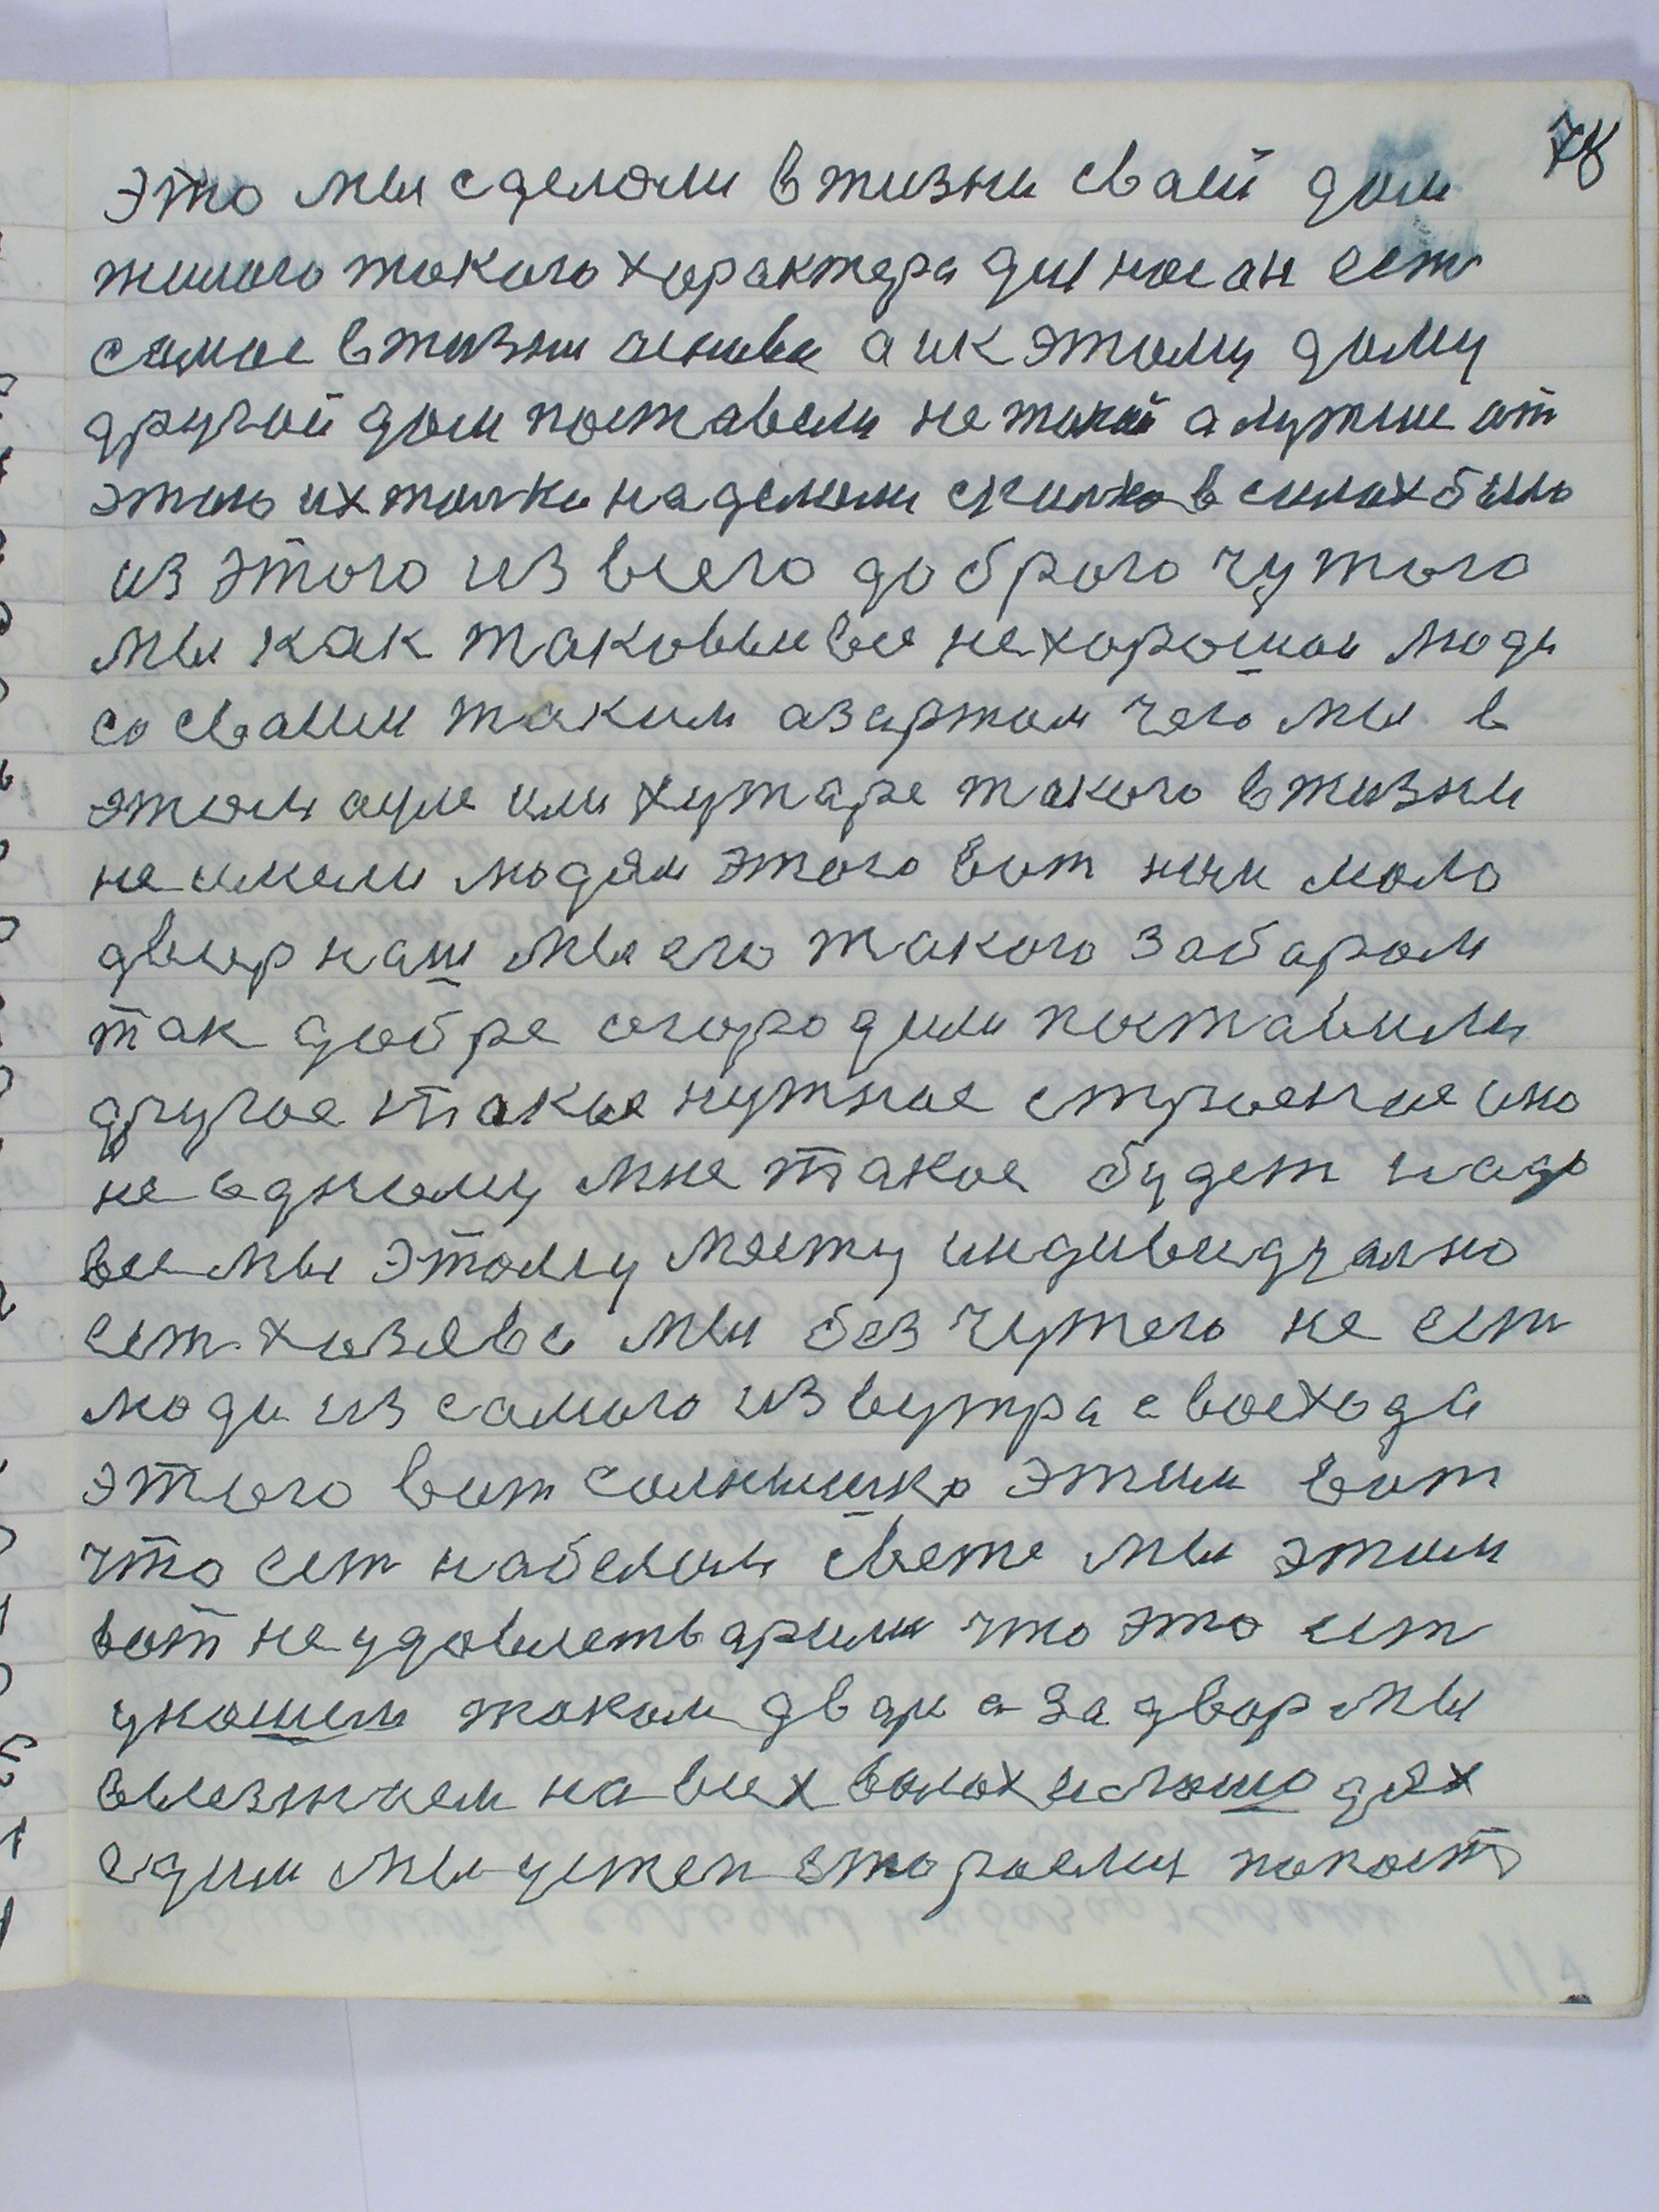 78
это мы сделали в жизни сваей дом
жилого такого характера для нас он ест
самое в жизни основа а и к этому дому
другой дом поставели не такой а лутше от
этого их толки наделали сколко в силах было
из этого из всего доброго чутого
мы как таковыи все нехорошои люди
со сваим таким азартом чего мы в
этом ауле или хутаре такого в жизни
не имели людям этого вот ныи мало
двоер наш мы его такого забаром
так добре огородили поставили
другое такое нужное строение оно
не одному мне такое будет надо
все мы этому месту индивидуално
ест хозяева мы без чутого не ест
люди из самого из вутра с восхода
этого вот солнышка этим вот
что ест на белом свете мы этим
вот не удовлетварили что это ест
у нашем таком дваре а за двор мы
выезжаем на всех волах и лошодях
едим мы у степ стороемы попаст